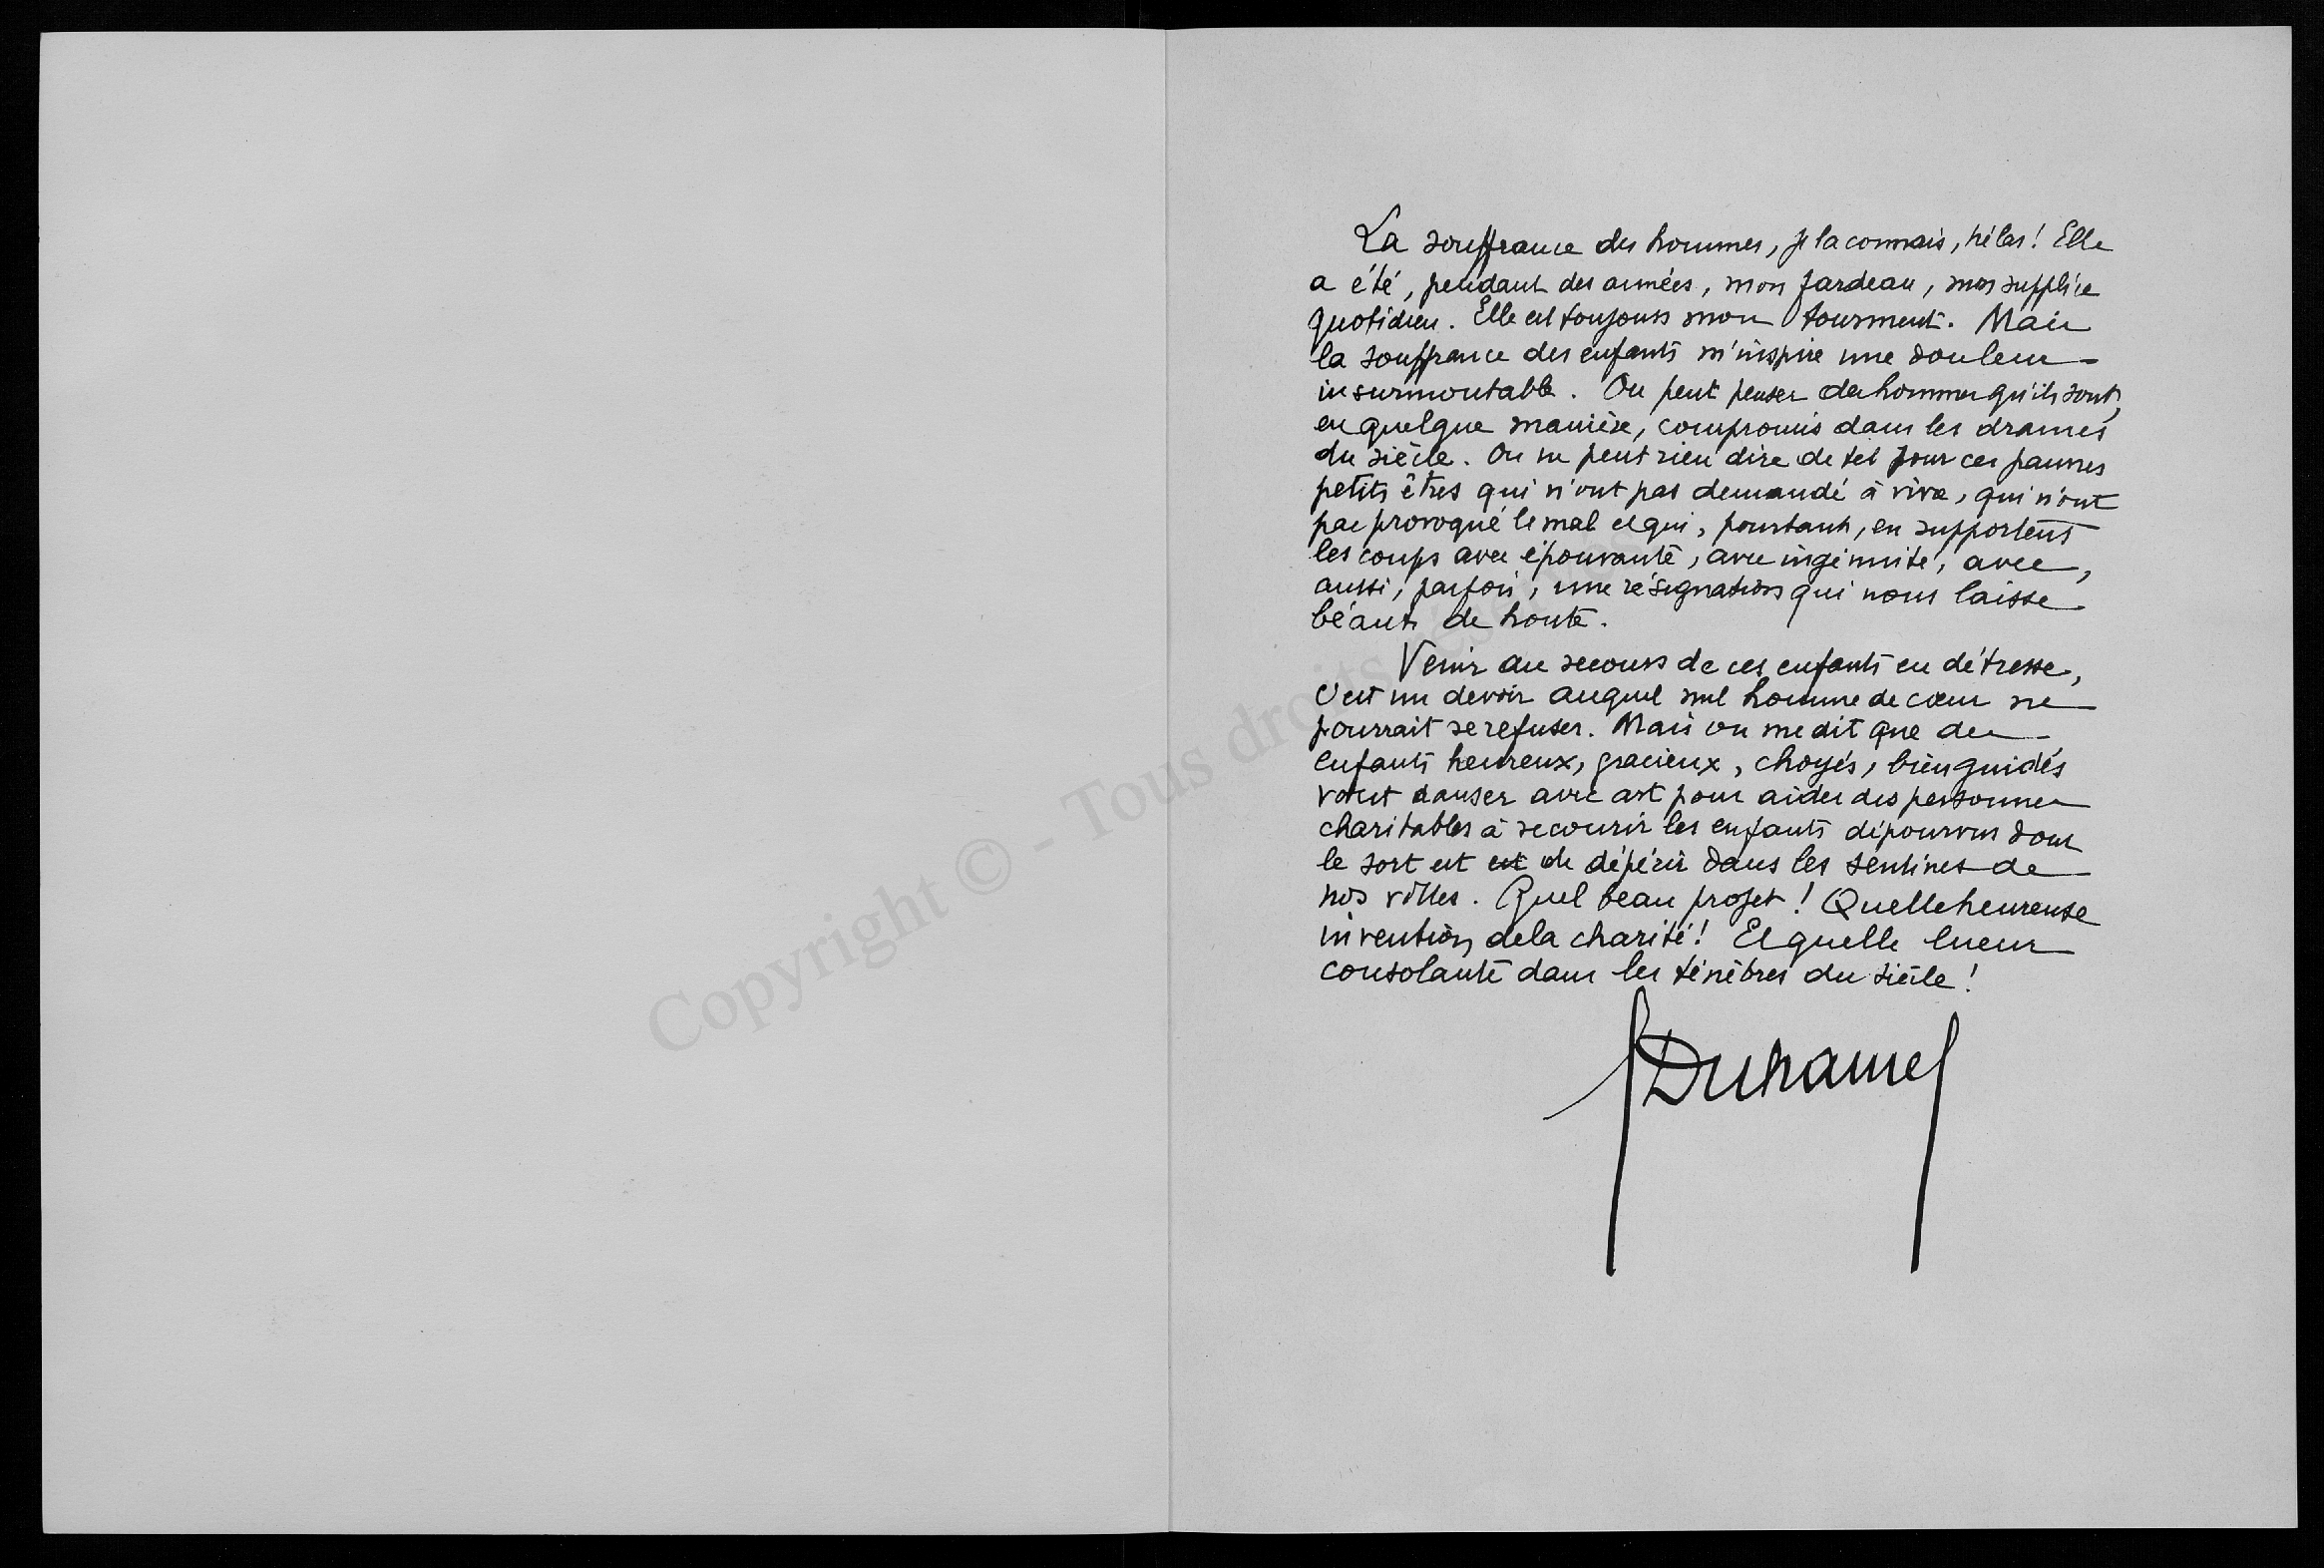 La souffrance des hommes, je la connais, hélas! Elle
a été, pendant des années, mon fardeau, mon supplice
quotidien. Elle est toujours mon tourment. Mais
la souffrance des enfants m'inspire une douleur
insurmontable. On peut penser des hommes qu'ils sont,
en quelque manière, compromis dans les drames
du siècle. On ne peut rien dire de tel pour ces pauvres
petits êtres qui n'ont pas demandé à vivre, qui n'ont
pas provoqué le mal et qui, pourtant, en supportent
les coups avec épouvante, avec ingénuité, avec,
aussi, parfois, une résignation qui nous laisse
béants de honte.
Venir au secours de ces enfants en détresse,
C'est un devoir auquel nul homme de cœur ne
pourrait se refuser. Mais on me dit que des
enfants heureux, gracieux, choyés, bien guidés
vont danser avec art pour aider des personnes
charitables à secourir les enfants dépourvus dont
le sort est est de dépérir dans les sentines de
nos villes. Quel beau projet! Quelle heureuse
invention de la charité! Et quelle lueur
consolante dans les ténèbres du siècle!
Duhamel
Copyright © - Tous droits